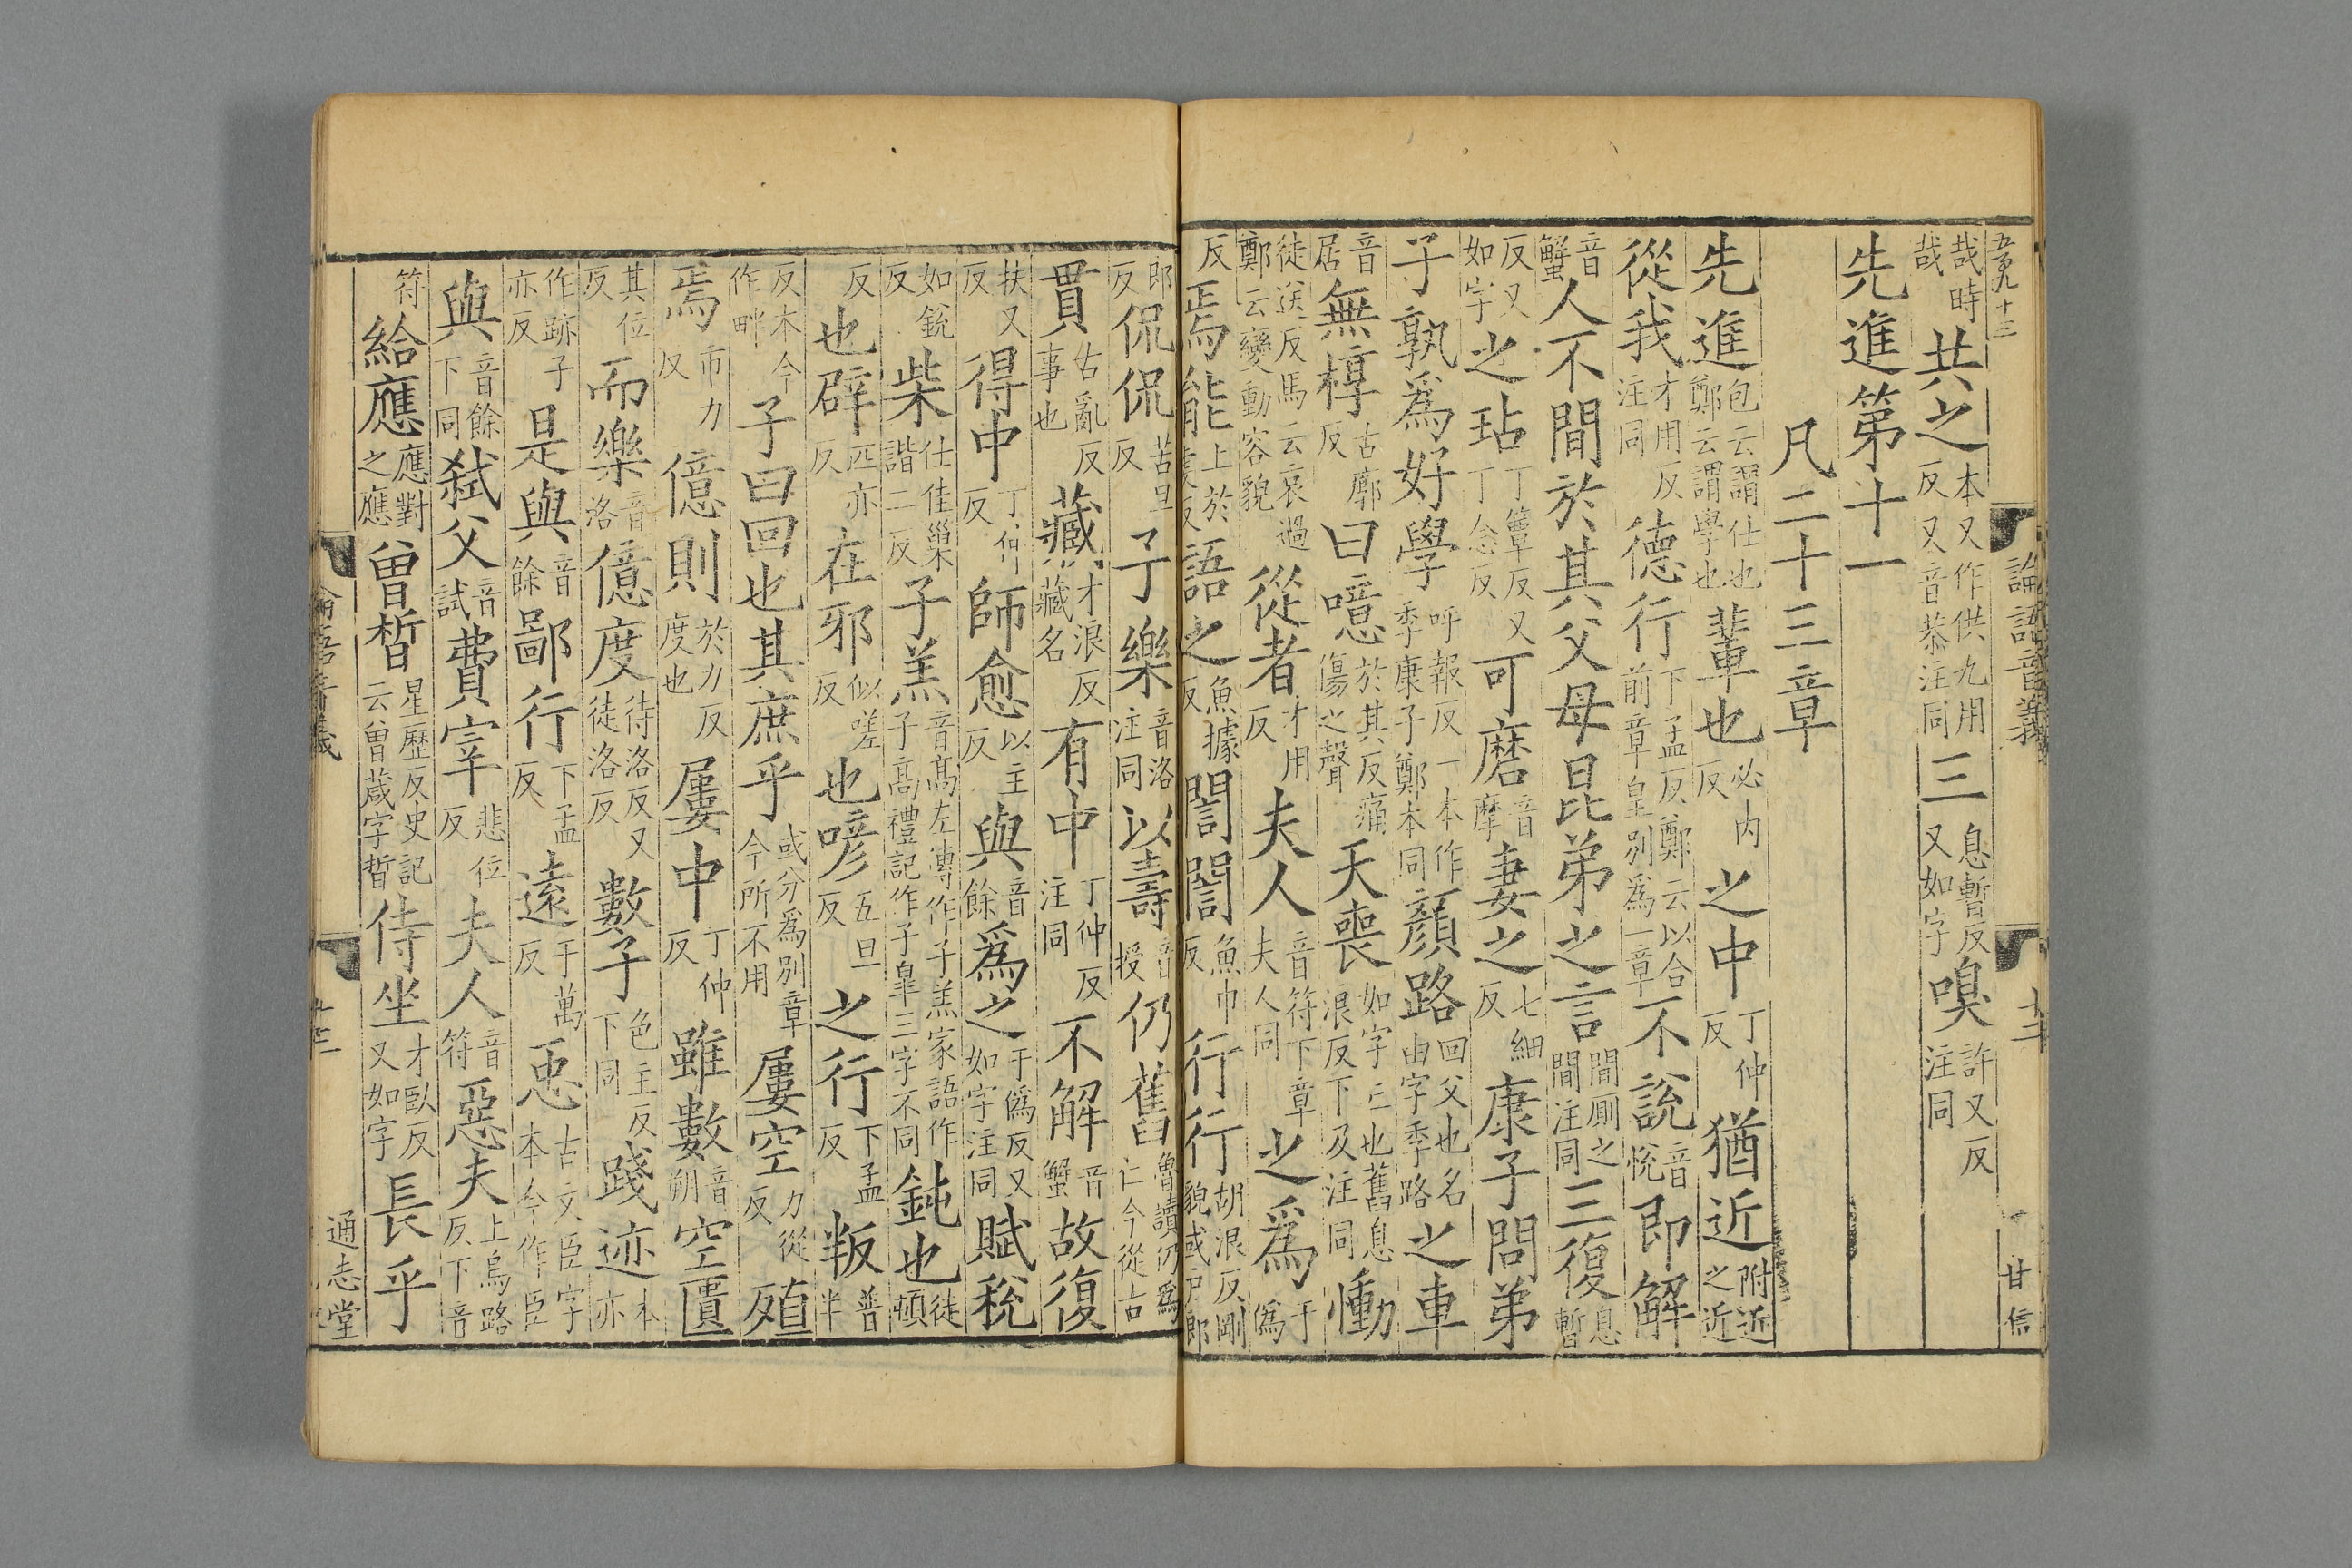 論語音義
甘信
哉時哉 共之本又作供九用反又音恭注同三息暫反又如字嗅許又反注同
先進第十一
凡二十三章
先進包云謂仕也鄭云謂學也輩也必內反之中丁仲反猶近附近之近
從我才用反注同德行下孟反鄭云以合前章皇別爲一章不說音悅即解
音蟹人不間於其父母昆弟之言間厠之間注同三復息暫
反又如字之玷丁簟反又丁念反可磨音摩妻之七細反康子問弟
子孰爲好學呼報反一本作季康子鄭本同顏路回父也名由字季路之車
音居無椁古廓反曰噫於其反痛傷之聲天喪如字亡也舊息浪反下及注同慟
徒送反馬云哀過鄭云變動容貌從者才用反夫人音符下章夫人同之爲于僞
反焉能上於虔反語之魚據反誾誾魚巾反行行胡浪反剛貌或戶郎
郎反侃侃苦旦反子樂音洛注同以壽音授仍舊魯讀仍爲仁今從古
貫古亂反事也藏才浪反藏名有中丁仲反注同不解音蟹故復
扶又反得中丁仲反師愈以主反與音餘爲之于僞反又如字注同賦稅
如銳反柴仕佳巢諧二反子羔音高左傳作子羔家語作子高禮記作子皐三字不同鈍也徒頓
反也辟匹亦反在邪似嗟反也喭五旦反之行下孟反叛普半
反本今作畔子曰回也其庶乎或分爲別章今所不用屢空力從反殖
焉市力反億則於力反度也屢中丁仲反雖數音朔空匱
其位反而樂音洛億度待洛反又徒洛反數子色主反下同踐迹本亦
作跡子亦反是與音餘鄙行下孟反遠于萬反𢘑古文臣字本今作臣
與音餘下同弒父音試費宰悲位反夫人音符惡夫上烏路反下音
符給應應對之應曾晳星歷反史記云曾蒧字晳侍坐才臥反又如字長乎
通志堂